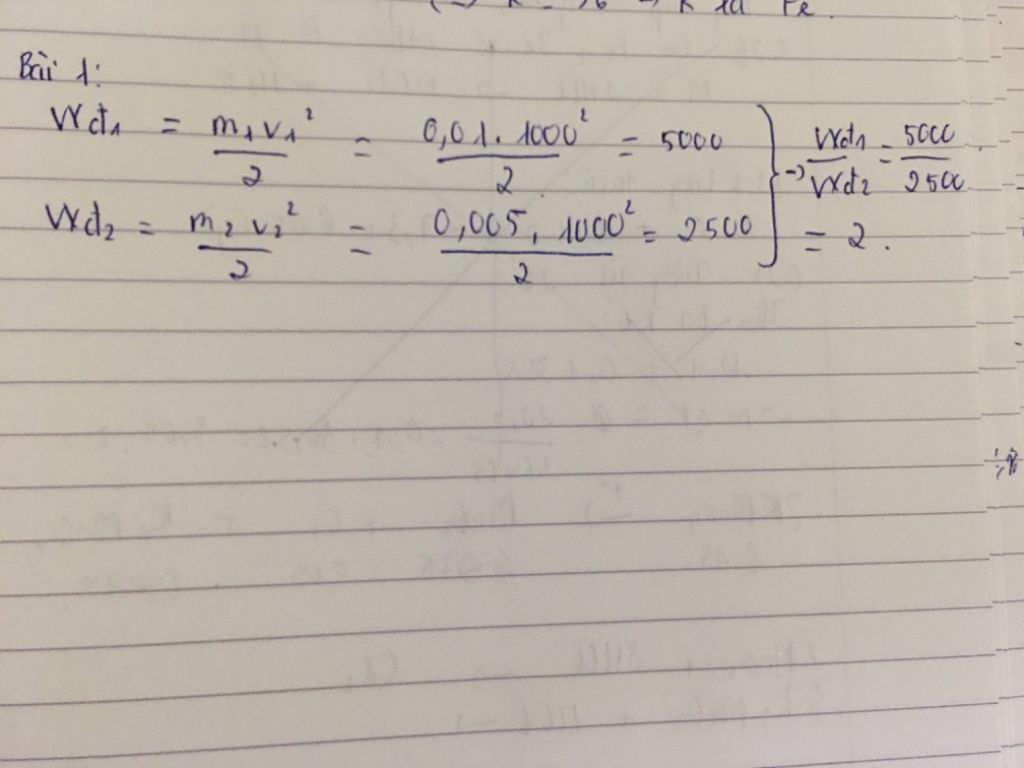 Bài 1:
Wđ₁ = m₁v₁²/2 = 0,01.1000²/2 = 5000
Wđ₂ = m₂v₂²/2 = 0,005.1000²/2 = 2500
} → Wđ₁/Wđ₂ = 5000/2500
= 2.